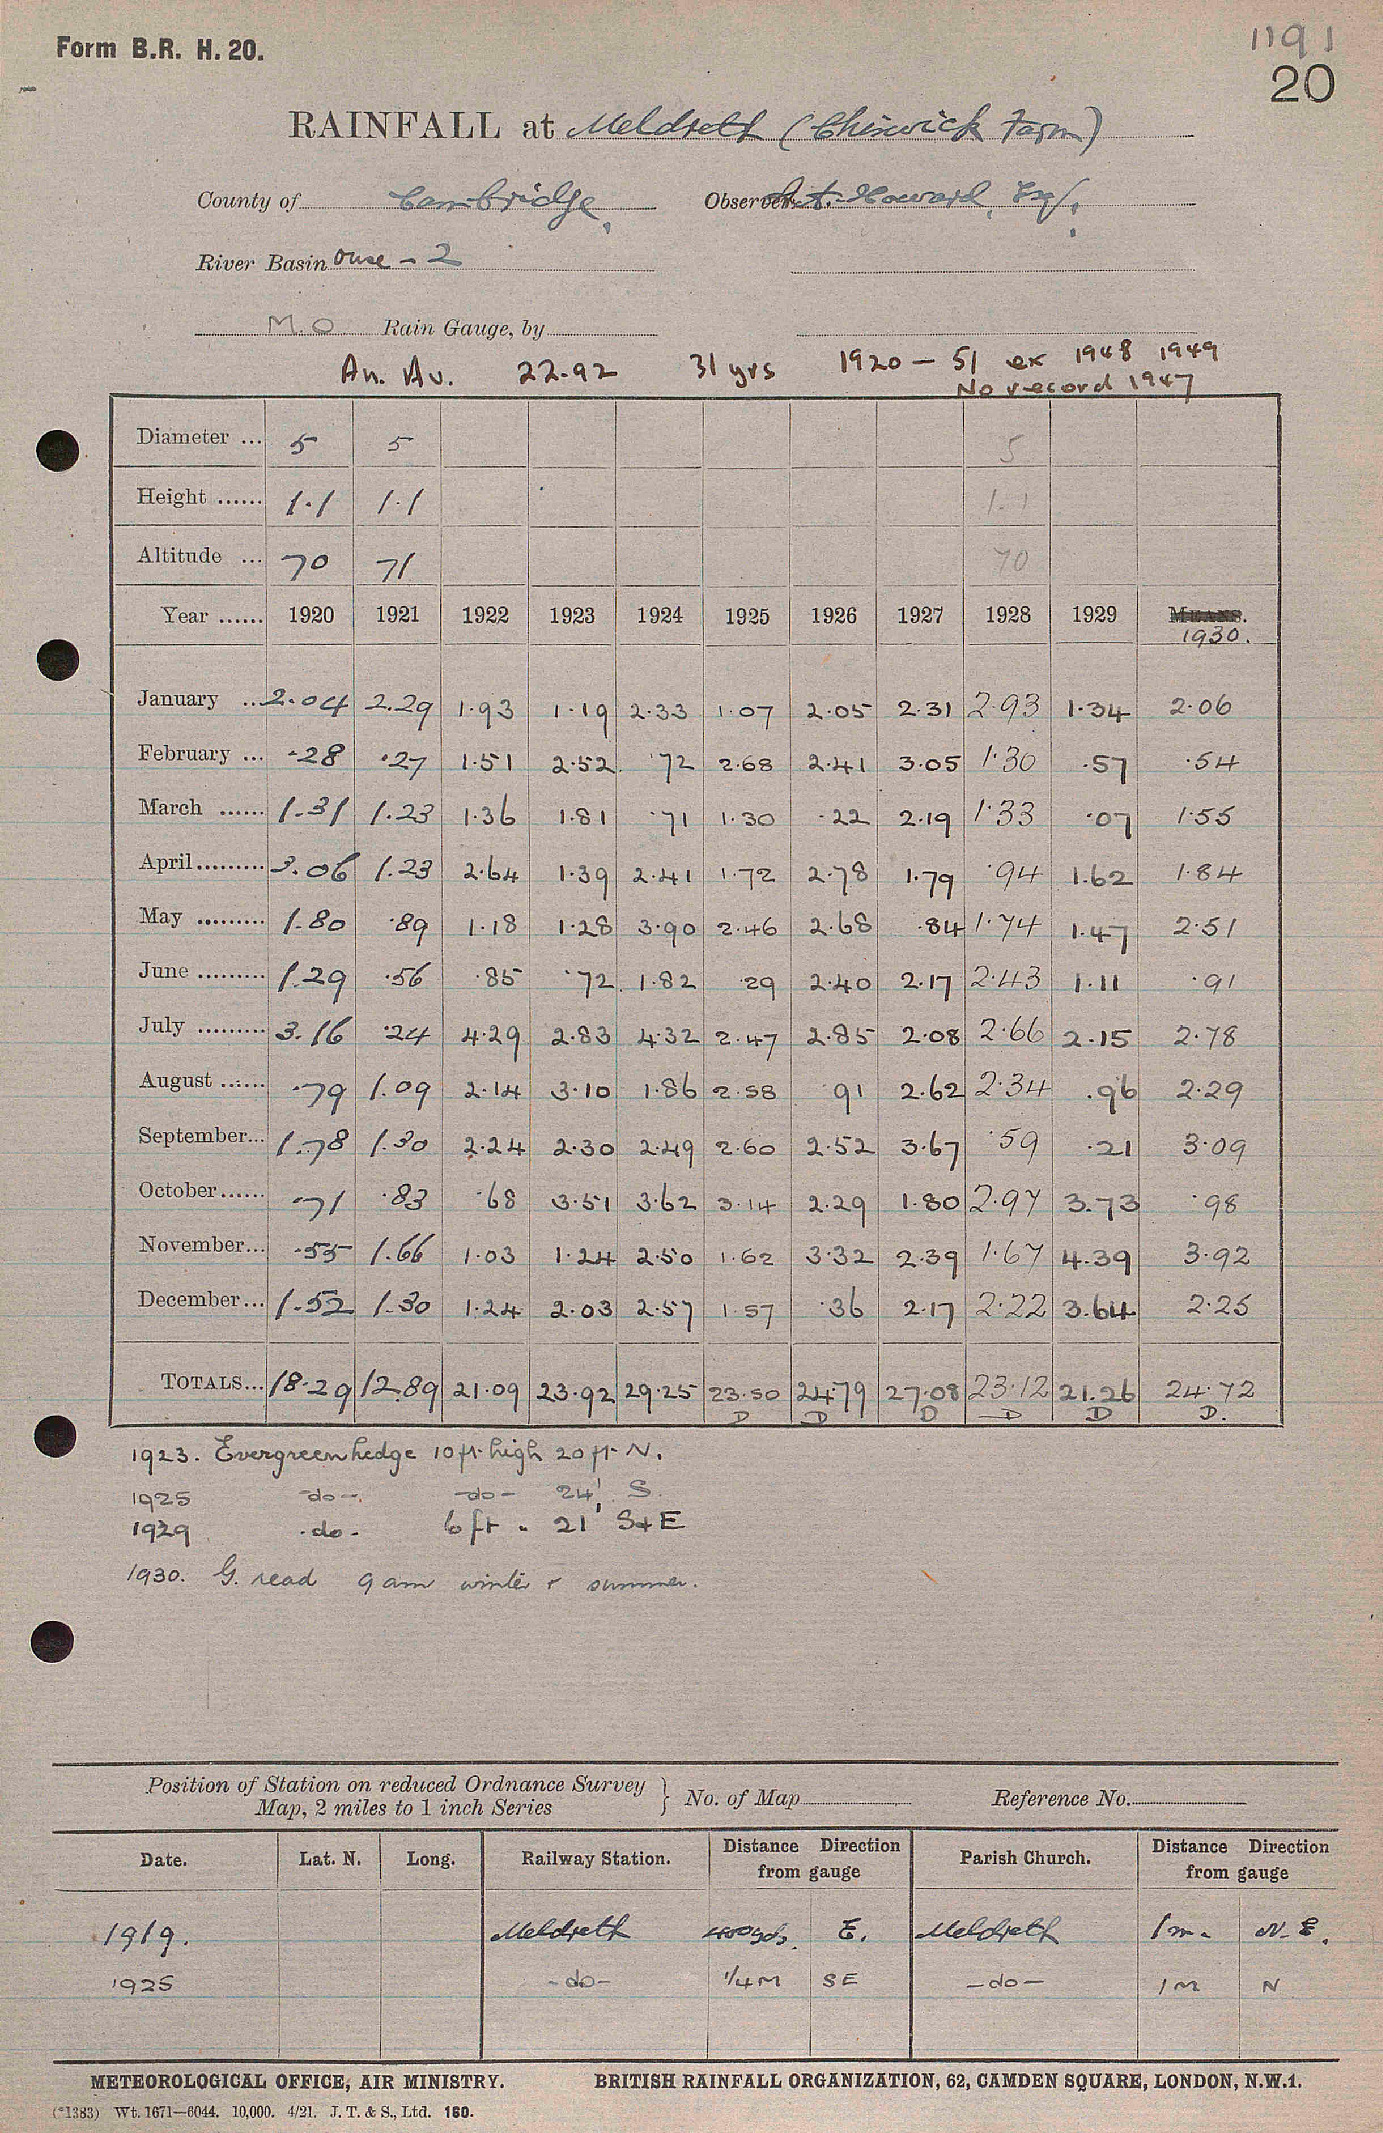 Form B.R. H. 20.
1191
20
RAINFALL at Meldreth (Chiswick Farm)
County of Cambridge. Observer A. Howard, Esq.
River Basin Ouse - 2
M.O Rain Gauge, by
An. Av. 22.92 31 yrs 1920 - 51 ex 1948 1949
No record 1947
Diameter ... 5 5 5
Height ...... 1.1 1.1 1.1
Altitude ... 70 71 70
Year ...... 1920 1921 1922 1923 1924 1925 1926 1927 1928 1929 MEANS.
1930.
January ... 2.04 2.29 1.93 1.19 2.33 1.07 2.05 2.31 2.93 1.34 2.06
February ... .28 .27 1.51 2.52 .72 2.68 2.41 3.05 1.30 .57 .54
March ...... 1.31 1.23 1.36 1.81 .71 1.30 .22 2.19 1.33 .07 1.55
April......... 3.06 1.23 2.64 1.39 2.41 1.72 2.78 1.79 .94 1.62 1.84
May ......... 1.80 .89 1.18 1.28 3.90 2.46 2.68 .84 1.74 1.47 2.51
June ......... 1.29 .56 .85 .72 1.82 .29 2.40 2.17 2.43 1.11 .91
July ......... 3.16 .24 4.29 2.83 4.32 2.47 2.85 2.08 2.66 2.15 2.78
August ...... .79 1.09 2.14 3.10 1.86 2.58 .91 2.62 2.34 .96 2.29
September... 1.78 1.30 2.24 2.30 2.49 2.60 2.52 3.67 .59 .21 3.09
October...... .71 .83 .68 3.51 3.62 3.14 2.29 1.80 2.97 3.73 .98
November... .55 1.66 1.03 1.24 2.50 1.62 3.32 2.39 1.67 4.39 3.92
December... 1.52 1.30 1.24 2.03 2.57 1.57 .36 2.17 2.22 3.64 2.25
TOTALS... 18.29 12.89 21.09 23.92 29.25 23.50 24.79 27.08 23.12 21.26 24.72
D D D D D D.
1923. Evergreen hedge 10 ft. high 20 ft. N.
1925 -do-. -do- 24' S.
1929 .do- 6 ft " 21' S+E
1930. G. read 9 am winter & summer.
Position of Station on reduced Ordnance Survey Map, 2 miles to 1 inch Series } No. of Map Reference No.
Date. Lat. N. Long. Railway Station. Distance Direction from gauge Parish Church. Distance Direction from gauge
1919. Meldreth 400 yds. E. Meldreth 1 m. N.E.
1925 -do- 1/4 M SE -do- 1 M N
METEOROLOGICAL OFFICE, AIR MINISTRY. BRITISH RAINFALL ORGANIZATION, 62, CAMDEN SQUARE, LONDON, N.W.1.
(*1383) Wt. 1671—6044. 10,000. 4/21. J. T. & S., Ltd. 160.